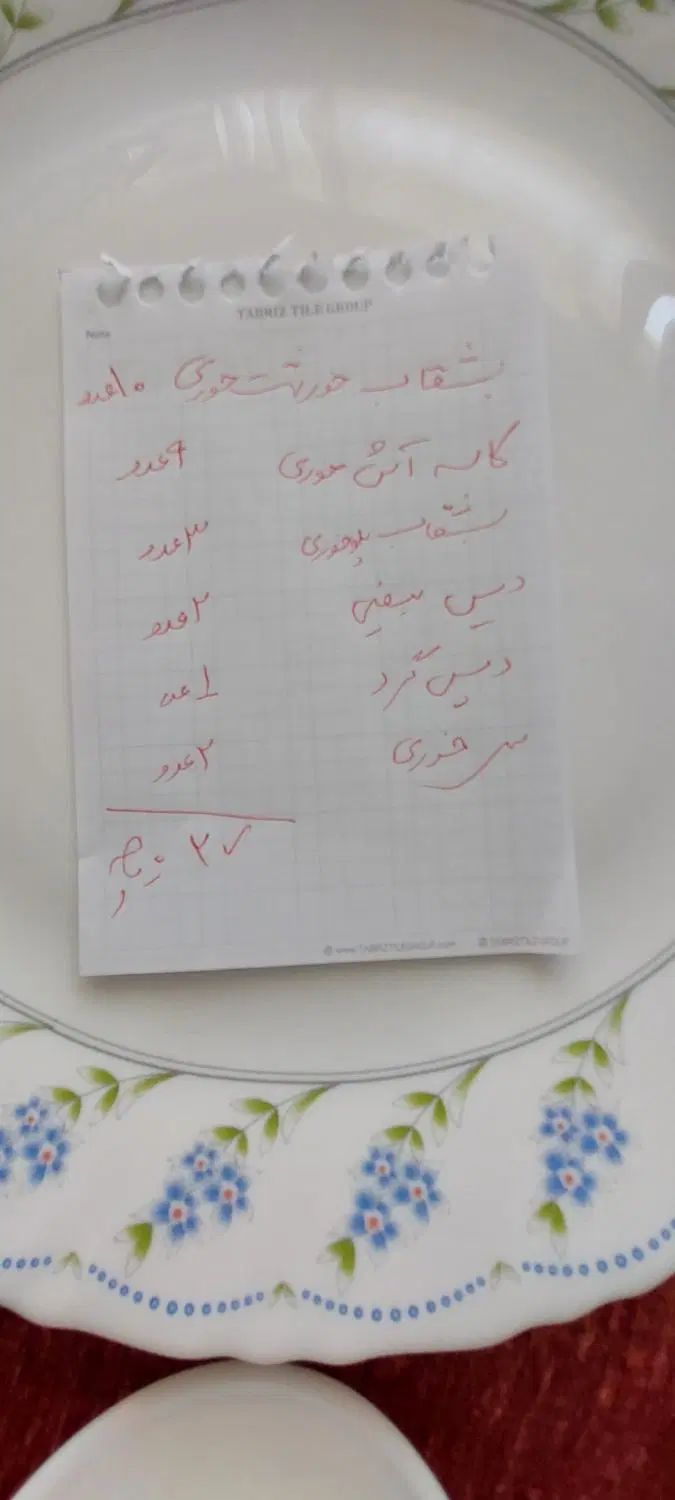 TABRIZ TILE GROUP
Note
بشقاب خورشت خوری ۱۰عدد
کاسه آش خوری ۹عدد
بشقاب پلوخوری ۳عدد
دیس بیضی ۲عدد
دیس گرد 1عدد
س خوری ۲عدد
۲۷ پارچه
www.TABRIZTILEGROUP.com TABRIZTILEGROUP